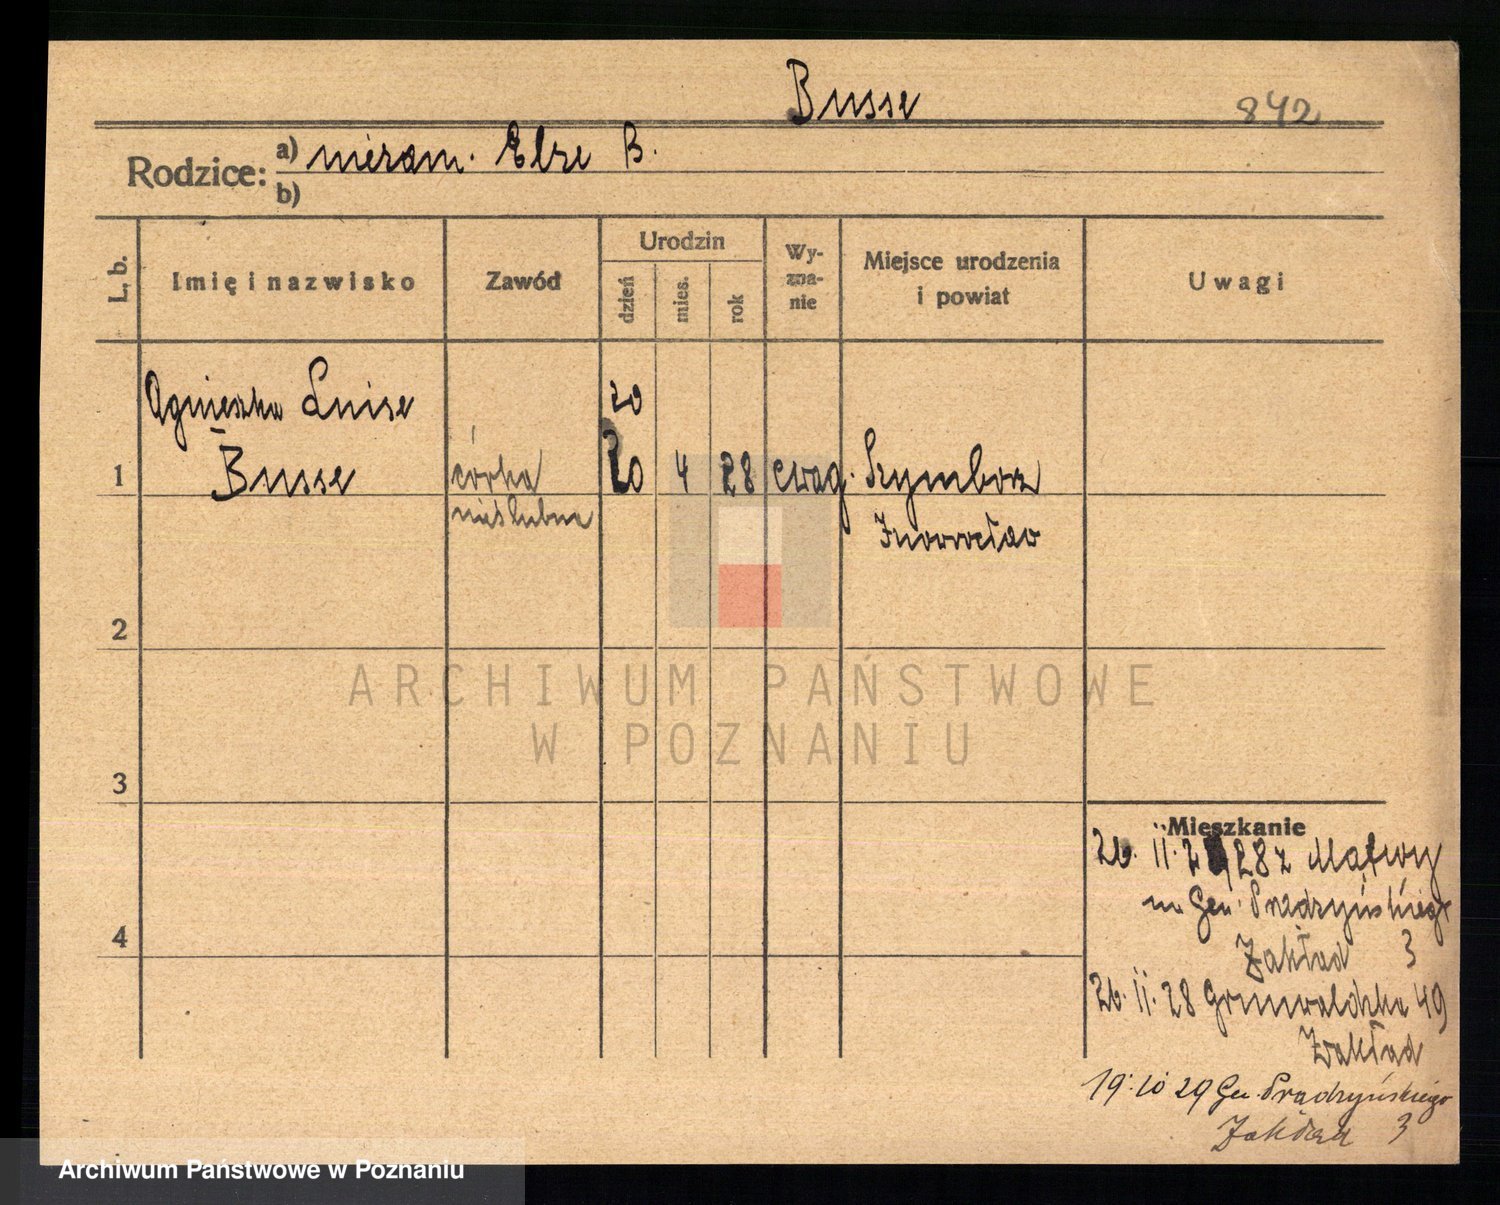 Busse
842
Rodzice: a) niezam. Elze B.
b)
L. b.
Imię i nazwisko
Zawód
Urodzin
dzień
mies.
rok
Wy-
zna-
nie
Miejsce urodzenia
i powiat
Uwagi
Agnieszka Luise
20
1 Busse córka 20 4 28 ewag. Szymborz
nieślubna
Inowrocław
2
3
4
ARCHIWUM PAŃSTWOWE
W POZNANIU
Mieszkanie
26. 11. 28 z Mątwy
Gen. Prądzyńskiego
Zakład 3
26. 11. 28 Grunwaldzka 49
Zakład
19. 10 29 Gen. Prądzyńskiego
Zakład 3
Archiwum Państwowe w Poznaniu